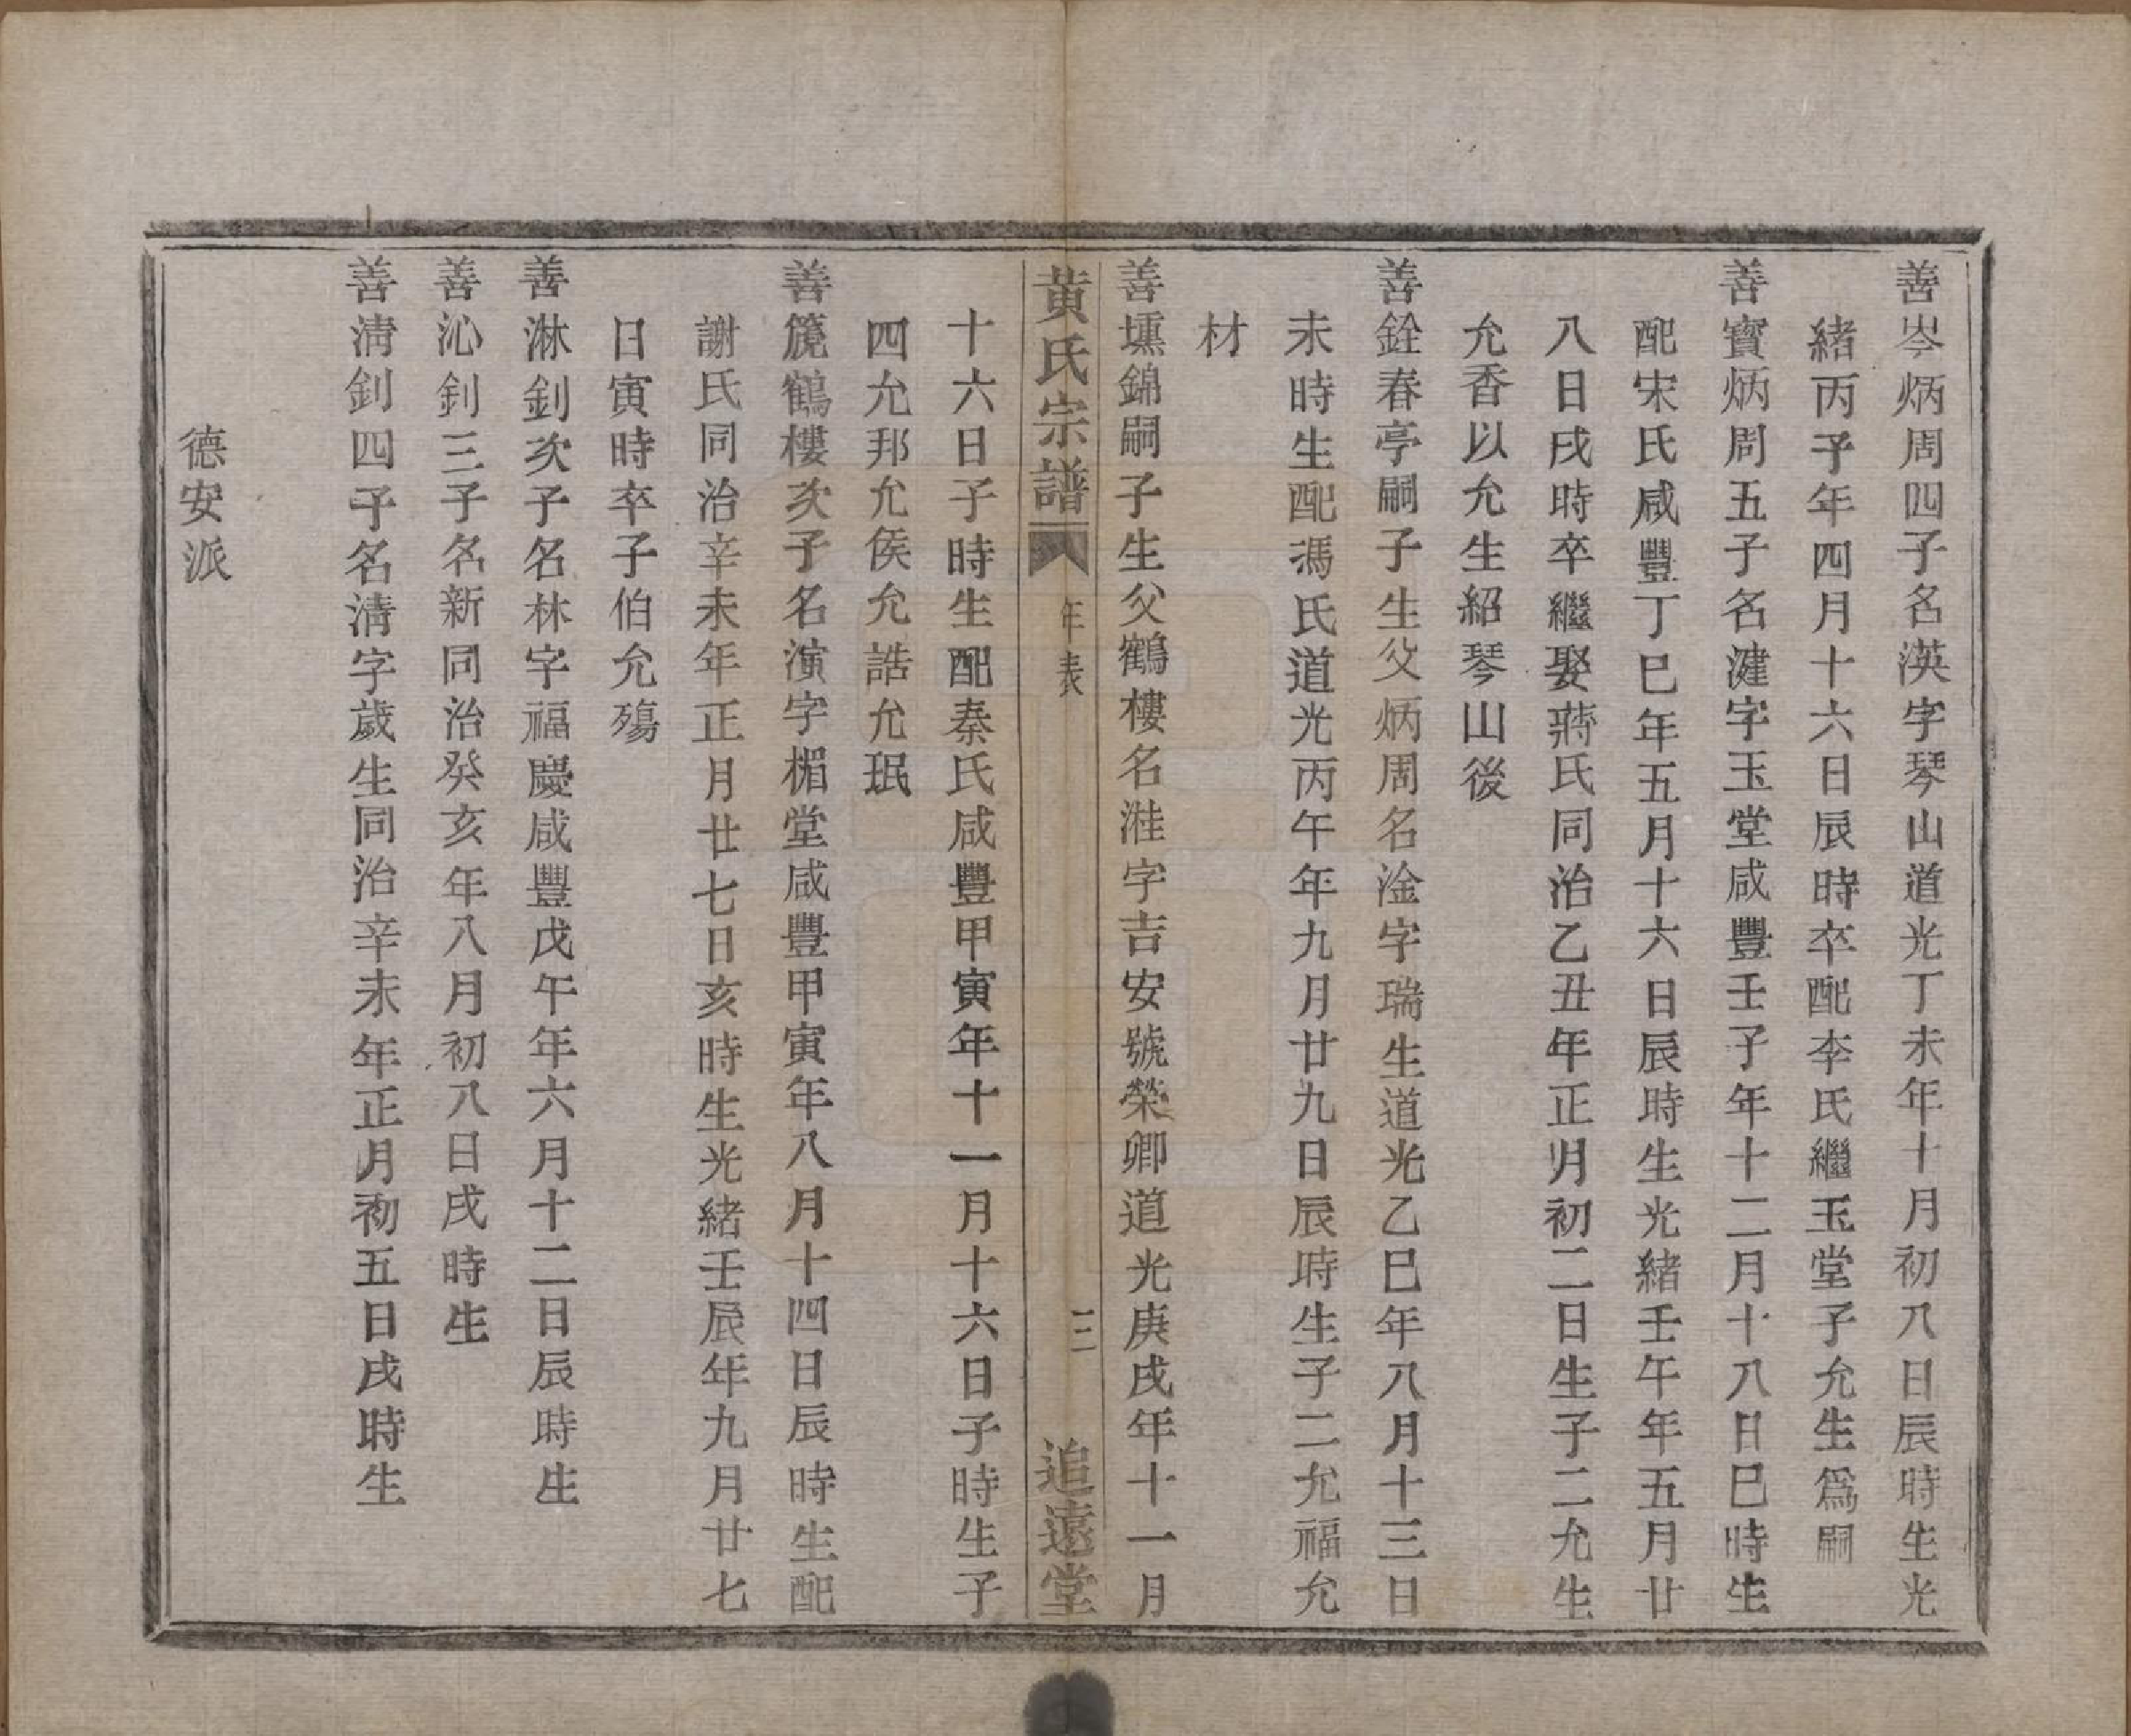 善岑炳周四子名渶字琴山道光丁未年十月初八日辰時生光
緒丙子年四月十六日辰時卒配李氏繼玉堂子允生爲嗣
善寶炳周五子名湕字玉堂咸豐壬子年十二月十八日巳時生
配宋氏咸豐丁巳年五月十六日辰時生光緒壬午年五月廿
八日戌時卒繼娶蔣氏同治乙丑年正月初二日生子二允生
允香以允生紹琴山後
善銓春亭嗣子生父炳周名淦字瑞生道光乙巳年八月十三日
未時生配馮氏道光丙午年九月廿九日辰時生子二允福允
材
善壎錦嗣子生父鶴樓名溎字吉安號榮卿道光庚戌年十一月
黃氏宗譜
年表
三
追遠堂
十六日子時生配秦氏咸豐甲寅年十一月十六日子時生子
四允邦允侯允誥允珉
善篪鶴樓次子名演字楣堂咸豐甲寅年八月十四日辰時生配
謝氏同治辛未年正月廿七日亥時生光緒壬辰年九月廿七
日寅時卒子伯允殤
善淋釗次子名林字福慶咸豐戊午年六月十二日辰時生
善沁釗三子名新同治癸亥年八月初八日戌時生
善清釗四子名清字歲生同治辛未年正月初五日戌時生
德安派